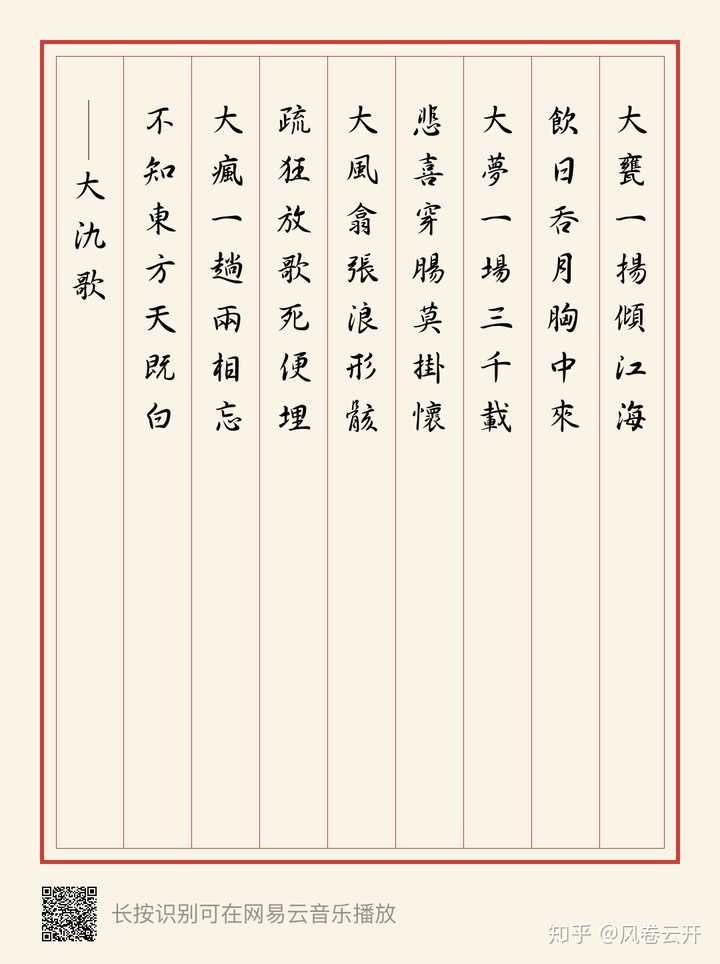 大甕一揚傾江海
飲日吞月胸中來
大夢一場三千載
悲喜穿腸莫掛懷
大風翕張浪形骸
疏狂放歌死便埋
大瘋一趟兩相忘
不知東方天既白
——大氿歌
长按识别可在网易云音乐播放
知乎 @风卷云开